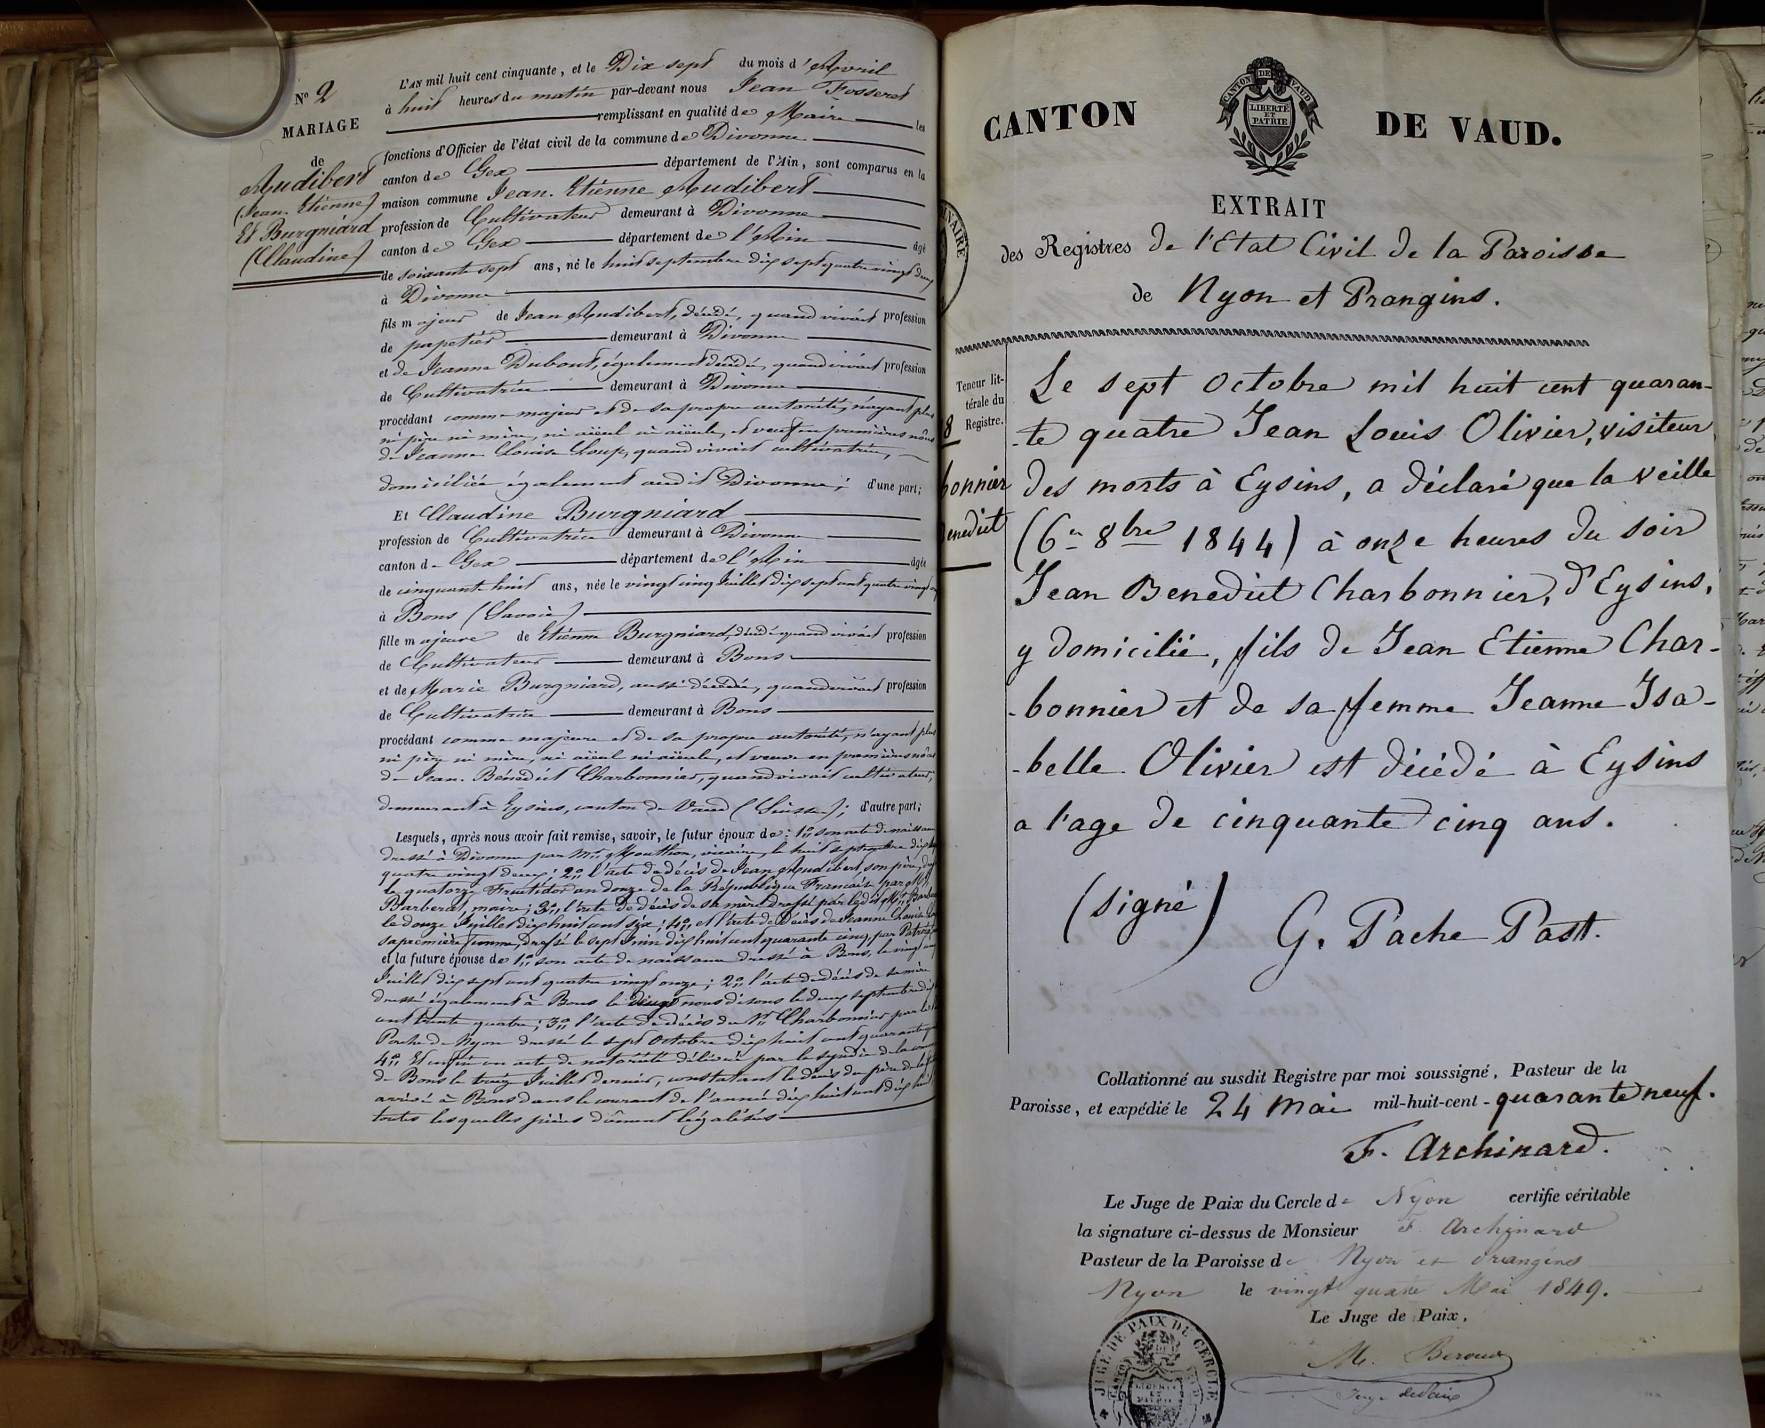 N° 2
MARIAGE
de
Audibert
(Jean. Etienne)
Et Burgniard
(Claudine)
L'AN mil huit cent cinquante, et le Dix sept du mois d'Avril
à huit heures du matin par-devant nous Jean Fosseret
remplissant en qualité de Maire les
fonctions d'Officier de l'état civil de la commune de Divonne
canton de Gex département de l'Ain, sont comparus en la
maison commune Jean. Etienne Audibert
profession de Cultivateur demeurant à Divonne
canton de Gex département de l'Ain âgé
de soixante sept ans, né le huit septembre dix sept quatre vingt deux
à Divonne
fils majeur de Jean Audibert, décédé, quand vivait profession
de papetier demeurant à Divonne
et de Jeanne Dubout, également décédée, quand vivait profession
de Cultivatrice demeurant à Divonne
procédant comme majeur et de sa propre autorité, n'ayant plus
ni père ni mère, ni aïeul ni aïeule, et veuf en premières nôces
de Jeanne Louise Loup, quand vivait cultivatrice,
domiciliée également audit Divonne; d'une part;
Et Claudine Burgniard
profession de Cultivatrice demeurant à Divonne
canton de Gex département de l'Ain âgée
de cinquante huit ans, née le vingt cinq Juillet dix sept cent quatre vingt
à Bons (Savoie)
fille majeure de Etienne Burgniard, décédé quand vivait profession
de Cultivateur demeurant à Bons
et de Marie Burgniard, aussi décédée, quand vivait profession
de Cultivatrice demeurant à Bons
procédant comme majeure et de sa propre autorité, n'ayant plus
ni père ni mère, ni aïeul ni aïeule, et veuve en premières nôces
de Jean. Bénédict Charbonnier, quand vivait cultivateur,
demeurant à Eysins, canton de Vaud (Suisse); d'autre part;
Lesquels, après nous avoir fait remise, savoir, le futur époux de: 1° son acte de naissance
dressé à Divonne par Mr. Mouthon, vicaire, le huit septembre dix sept
quatre vingt deux; 2° l'acte de décès de Jean Audibert, son père, du
le quatorze Fructidor an douze de la République Française par Mr
Barberat, maire; 3° l'acte de décès de sa mère dressé par ledit Mr. Barberat
le douze Juillet dix huit cent six; 4° et l'acte de Décès de Jeanne Louise Loup
sa première femme, Dressé le sept Juin dix huit cent quarante cinq, par
et la future épouse de 1° son acte de naissance dressé à Bons, le vingt cinq
Juillet dix sept cent quatre vingt onze; 2° l'acte de décès de sa mère
dressé également à Bons le nous disons le deux septembre dix
cent trente quatre; 3° l'acte de décès du Sr. Charbonnier par le
Pache de Nyon dressé le sept Octobre dix huit cent quarante
4° Et enfin un acte de notoriété délivré par le syndic de la
de Bons le treize Juillet dernier, constatant le décès du père de la
arrivé à Bons dans le courant de l'année dix huit cent dix huit
toutes lesquelles pièces dûment légalisées
CANTON DE VAUD.
CANTON DE VAUD
LIBERTÉ
ET
PATRIE
EXTRAIT
des Registres de l'Etat Civil de la Paroisse
de Nyon et Prangins.
Teneur lit-
térale du
Registre.
8
bonnier
Benedict
Le sept Octobre mil huit cent quaran-
-te quatre Jean Louis Olivier, visiteur
des morts à Eysins, a déclaré que la veille
(6e 8bre 1844) à onze heures du soir
Jean Benedict Charbonnier, d'Eysins,
y domicilié, fils de Jean Etienne Char-
-bonnier et de sa femme Jeanne Isa-
-belle Olivier est décédé à Eysins
a l'age de cinquante cinq ans.
(signé) G. Pache Past.
Collationné au susdit Registre par moi soussigné, Pasteur de la
Paroisse, et expédié le 24 Mai mil-huit-cent-quarante neuf.
F. Archinard.
Le Juge de Paix du Cercle de Nyon certifie véritable
la signature ci-dessus de Monsieur F. Archinard
Pasteur de la Paroisse de Nyon et Prangins
Nyon le vingt quatre Mai 1849.
Le Juge de Paix,
M. Beroud
Juge de Paix
JUGE DE PAIX DU CERCLE